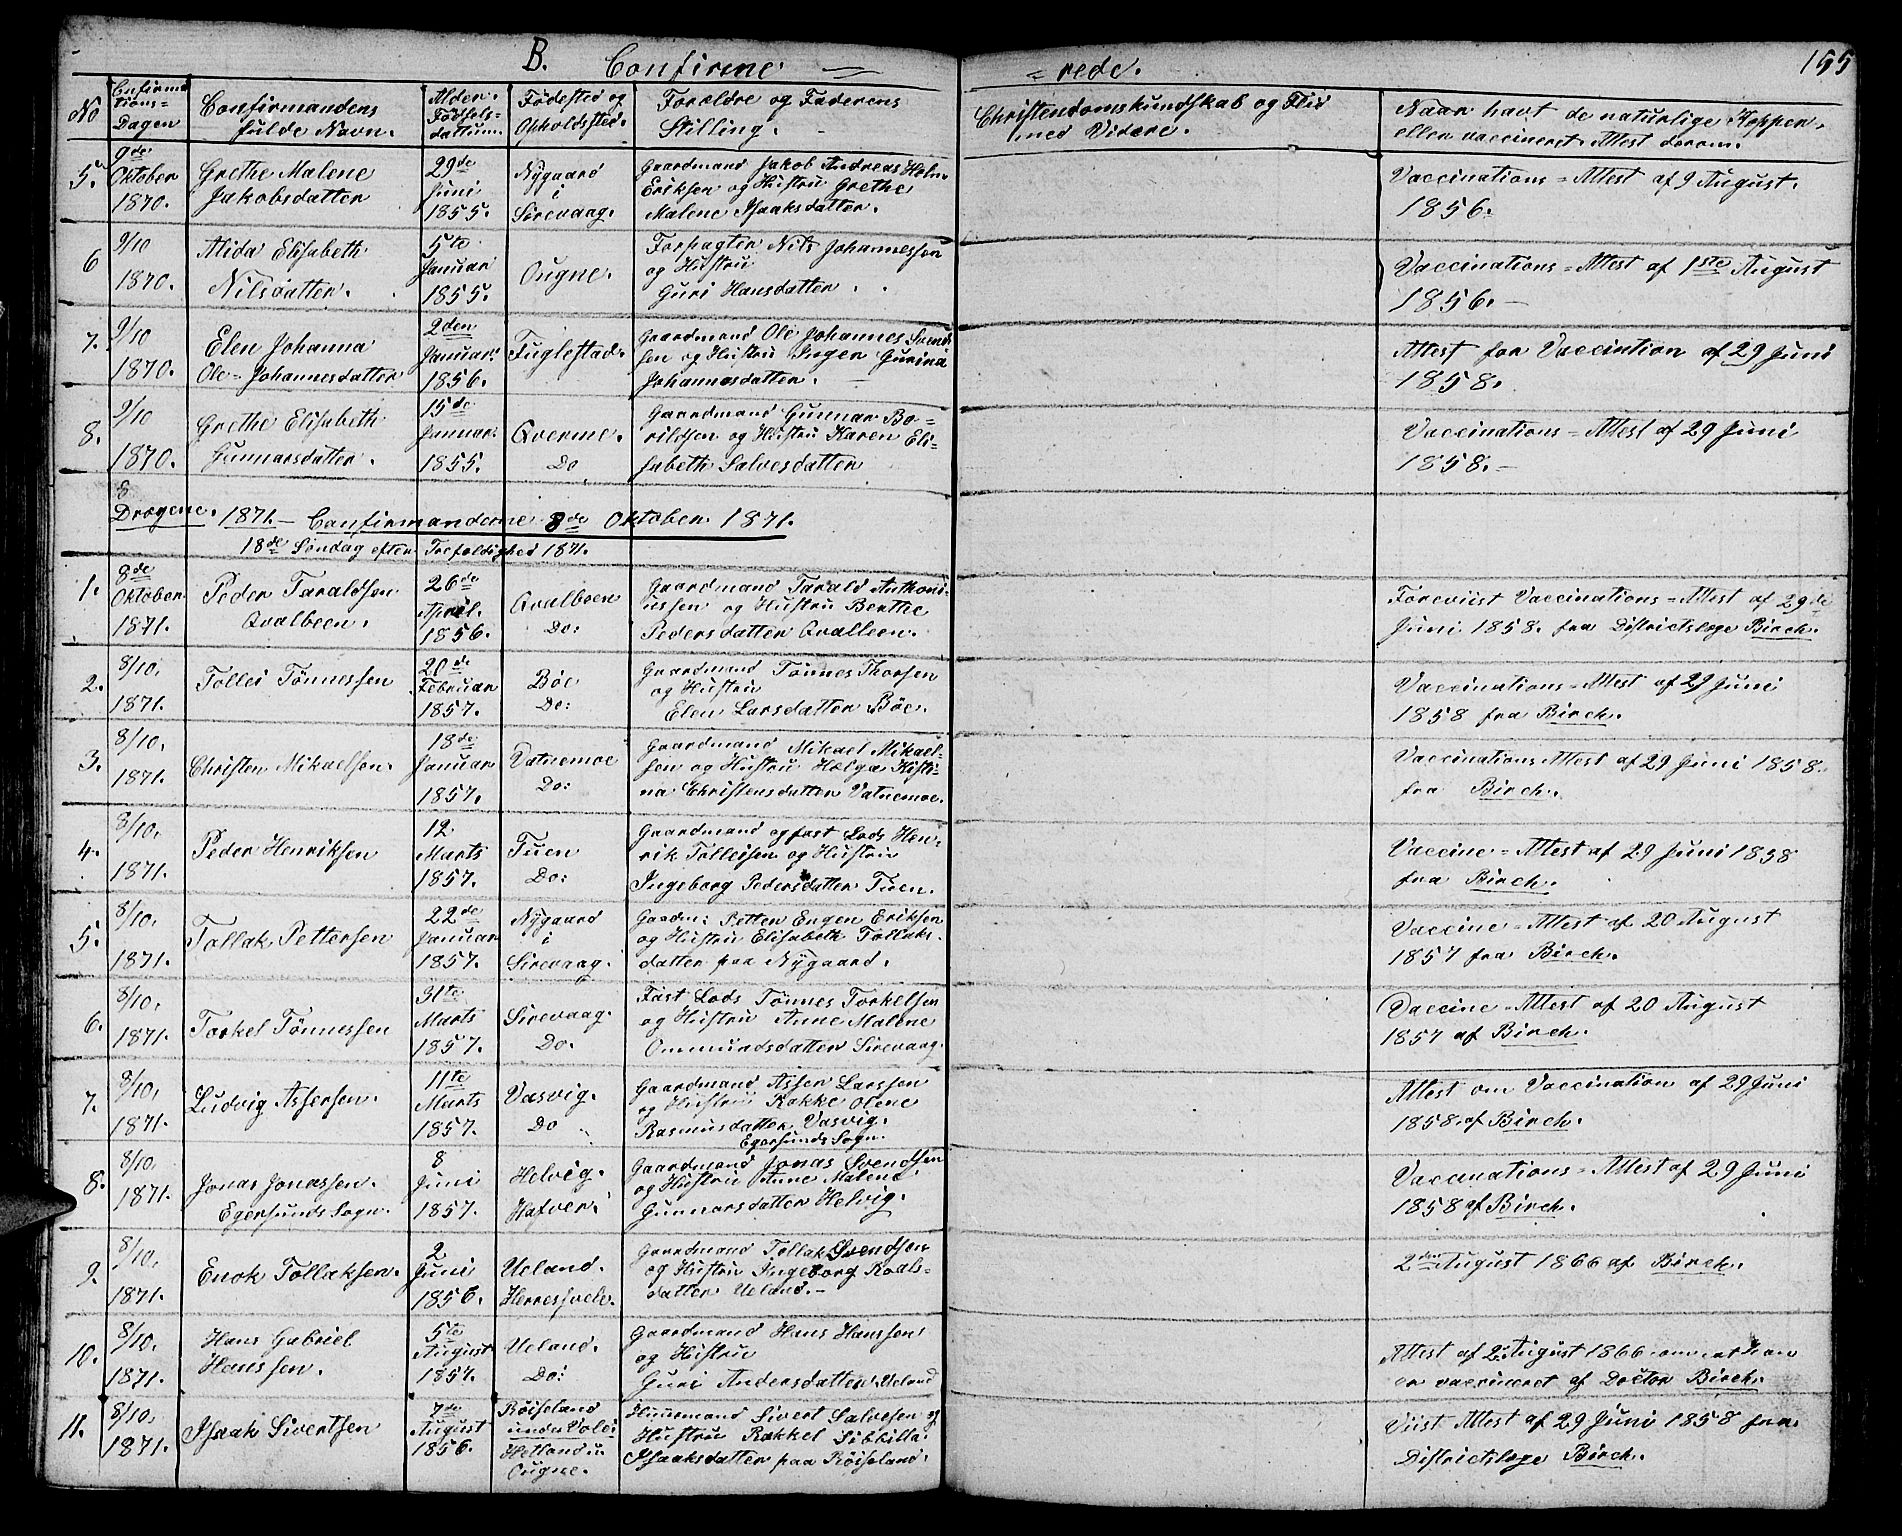 B. Confirme = = rede. 155
No
Confirma-
tions-
Dagen
Confirmandens
fulde Navn.
Alder.
Fødsels-
dattum.
Fødested og
Opholdssted.
Forældre og Faderens
Stilling.
Christendomskundskab og Flid
med Videre.
Naar havt de naturlige Kopper,
eller vaccineret. Attest derom.
5.
9de
Oktober
1870.
Grethe Malene
Jakobsdatter
29de
Juni
1855.
Nygaard
i
Sirevaag.
Gaardmand Jakob Andreas Holm
Eriksen og Hustru Grethe
Malene Isaaksdatter.
Vaccinations=Attest af 9 August.
1856.
6
9/10
1870.
Alida Elisabeth
Nilsdatter.
5te
Januar
1855.
Ougne.
Forpagter Nils Johannessen
og Hustru
Guri Hansdatter.
Vaccinations=Attest af 1ste August
1856.-
7.
9/10
1870.
Elen Johanna
Ole=Johannesdatter
2den
Januar.
1856.
Fuglestad.
Gaardmand Ole Johannes Svend-
sen og Hustru Ingen Gurina
Johannesdatter.
Attest for Vaccintion af 29 Juni
1858.
8.
9/10
1870.
Grethe Elisabeth
Gunnarsdatter.
15de
Januar.
1855.
Qverme.
Do
Gaardmand Gunnar Bo-
rildsen og Hustru Karen Eli-
sabeth Salvesdatter
Vaccinations=Attest af 29 Juni
1858.-
8
Drægene. 1871.- Confirmanderne 8de Oktober. 1871.
18de Søndag efter Trefoldighed 1871.
1.
8de
Oktober
1871.
Peder Taraldsen
Qvalbeen.
26de
April.
1856.
Qvalbeen
Do:
Gaardmand Tarald Anthoni-
ussen og Hustru Berthe
Pedersdatter Qvalleen.
Foreviist Vaccinations=Attest af 29de
Juni 1858. fra Districtslæge Birch.
2.
8/10.
1871.
Tollei Tönnessen
20de
Februar
1857.
Böe
Do:
Gaardmand Tönnes Thorsen
og Hustru
Elen Larsdatter Böe.
Vaccinations=Attest af 29 Juni
1858 fra Birch.
3.
8/10.
1871.
Christen Mikaelsen.
18de
Januar
1857.
Vatnemoe
Do:
Gaardmand Mikael Mikael-
sen og Hustru Hælga Kisti-
na Christensdatter Vatnemoe.
Vaccinations Attest af 29 Juni 1858.
fra Birch.
4.
8/10.
1871.
Peder Henriksen
12
Marts
1857.
Tuen
Do:
Gaardmand og fast Lods Hen-
rik Tolleisen og Hustru
Ingeborg Pedersdatter Tuen.
Vaccine=Attest af 29 Juni 1858
fra Birch.
5.
8/10.
1871.
Tollak Pettersen
22de
Januar
1857.
Nygaard
i
Sirevaag.
Gaardm: Petter Engen Eriksen
og Hustru Elisabeth Tollaks-
datter paa Nygaard.
Vaccine=Attest af 20 August
1857 fra Birch.
6.
8/10.
1871.
Torkel Tönnessen
31te
Marts
1857.
Sirevaag.
Do.
Fast Lods Tönnes Torkelsen
og Hustru Anne Malene
Ommundsdatter Sirevaag.
Vaccine=Attest af 20 August
1857 af Birch.
7.
8/10.
1871.
Ludvig Assersen.
11te
Marts
1857.
Vasvig.
Do
Gaardmand Asser Larssen
og Hustru Rakke Olene
Rasmusdatter Vasvig.
Egersunds Sogn.
Attest om Vaccination af 29 Juni
1858 af Birch.
8.
8/10.
1871.
Jonas Jonassen.
Egersunds Sogn.
8
Juni
1857.
Helvig.
Hafver.
Gaardmand Jonas Svendsen
og Hustru Anne Malene
Gunnarsdatter Helvig.
Vaccinations=Attest af 29 Juni
1858 af Birch.
9.
8/10.
1871.
Enok Tollaksen.
2
Juni
1856.
Ueland.
Herresvele.
Gaardmand Tollak Svendsen
og Hustru Ingeborg Roals-
datter Ueland.-
2den August 1866 af Birch.
10.
8/10.
1871.
Hans Gabriel
Hanssen.
5te
August
1857.
Ueland.
Do:
Gaardmand Hans Hanssen
og Hustru
Guri Andersdatter Ueland
Attest af 2. August 1866 om at han
er vaccineret af Doctor Birch.
11.
8/10.
1871.
Isaak Sivertsen
7de
August
1856.
Röiseland
under Vole:
Hetland u
Ougne.
Huusmand Sivert Salvesen og
Hustru Rakkel Sibbilla
Isaaksdatter paa Röiseland.
Viist Attest af 29 Juni 1858 fra
Districtslæge Birch.